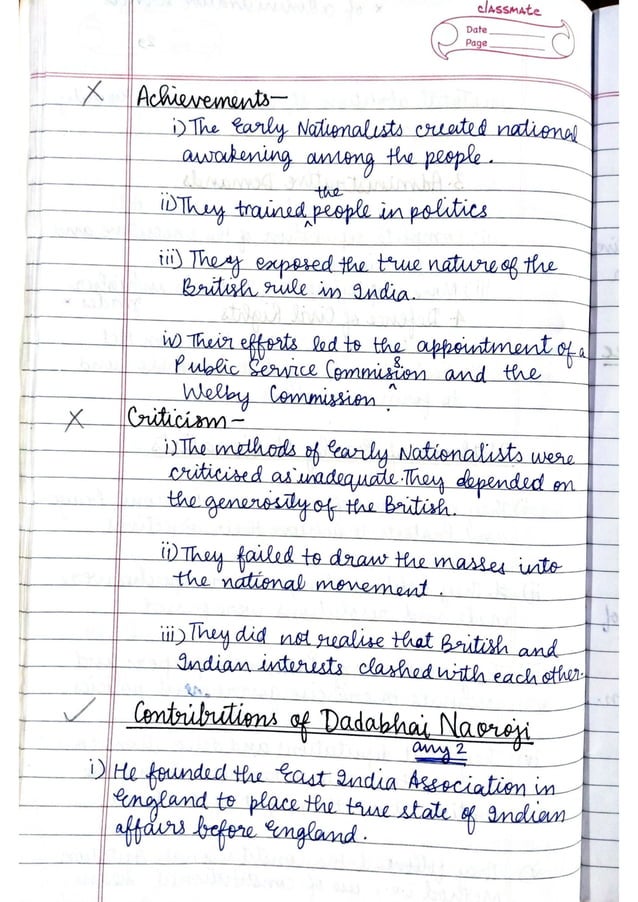 classmate
Date
Page
Achievements—
i) The Early Nationalists created national
awakening among the people.
the
ii) They trained ^ people in politics
iii) They exposed the true nature of the
British rule in India.
iv) Their efforts led to the appointment of a
Public Service Commission and the
Welby Commission.
Criticism—
i) The methods of Early Nationalists were
criticised as inadequate. They depended on
the generosity of the British.
ii) They failed to draw the masses into
the national movement.
iii) They did not realise that British and
Indian interests clashed with each other.
Contributions of Dadabhai Naoroji
any 2
i) He founded the East India Association in
England to place the true state of Indian
affairs before England.